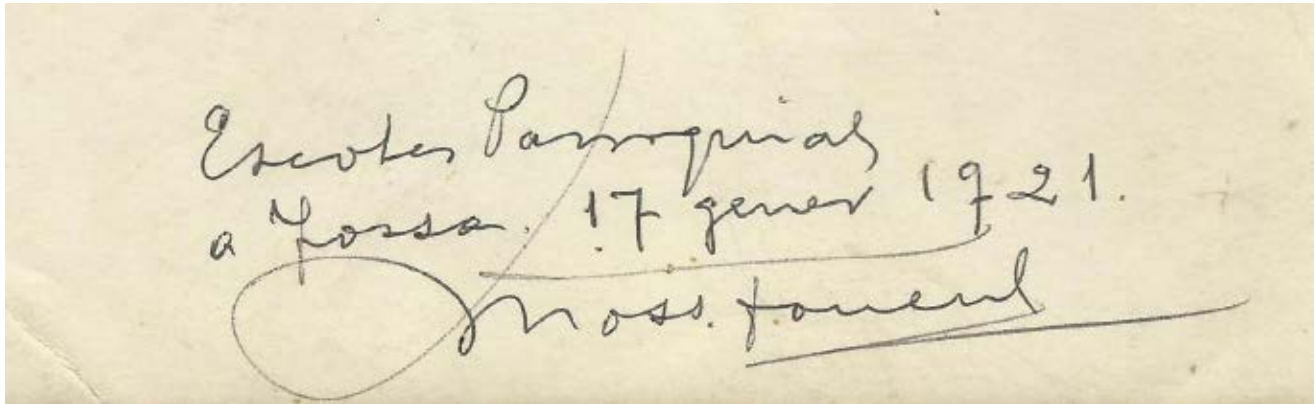 Escoles Parroquials
a Tossa. 17 gener 1921.
Moss.